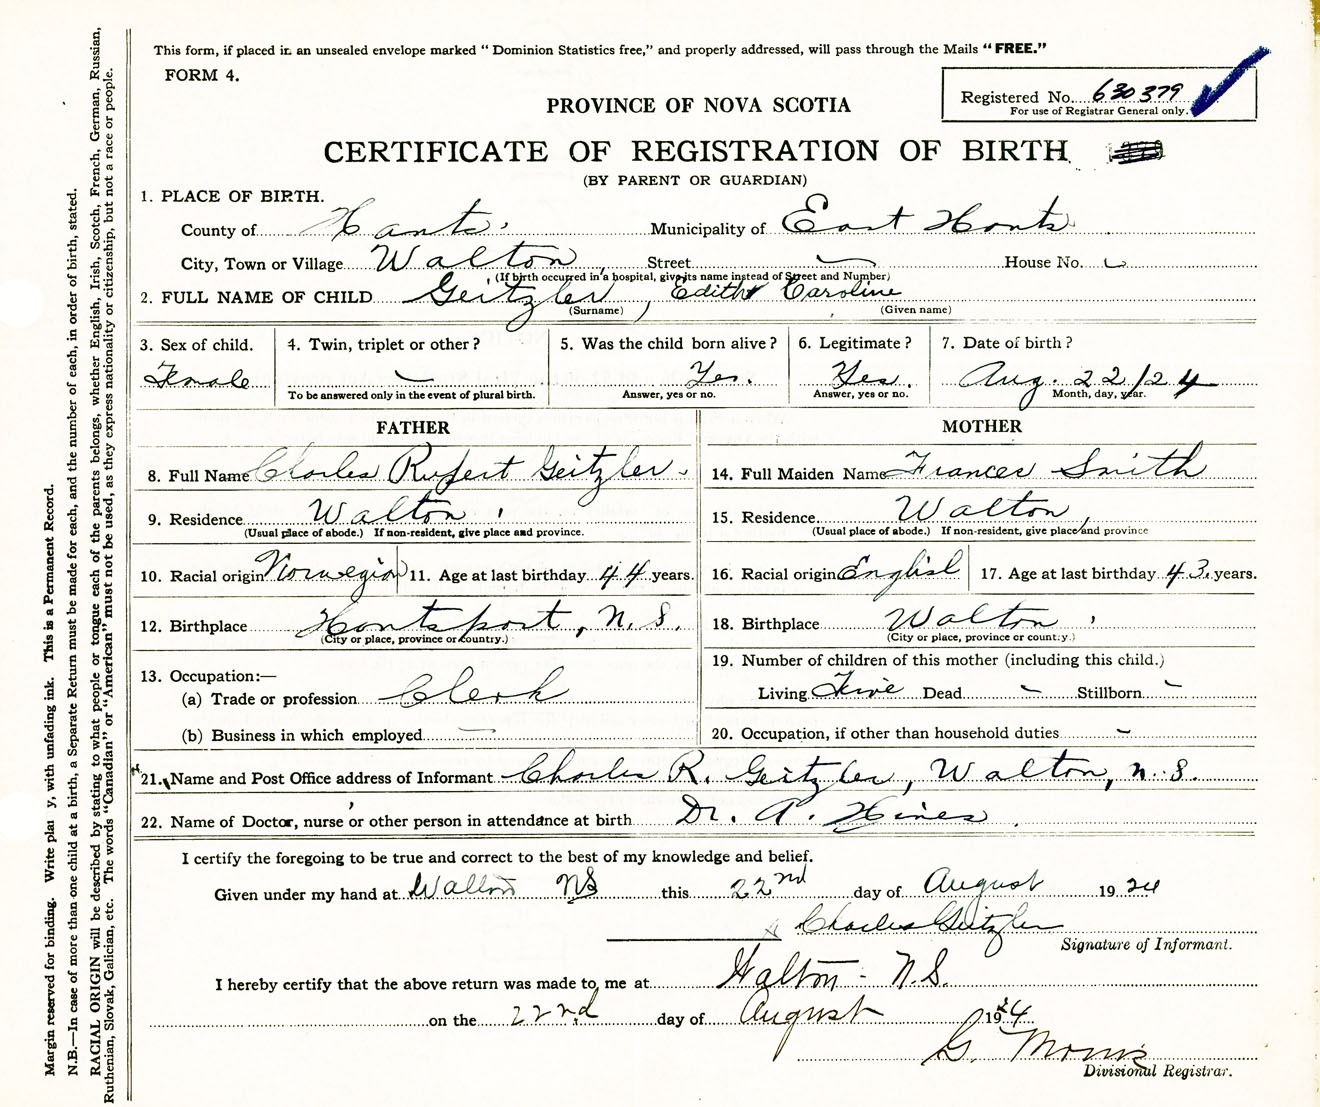 This form, if placed in an unsealed envelope marked "Dominion Statistics free," and properly addressed, will pass through the Mails "FREE."
FORM 4.
Registered No. 630379
For use of Registrar General only.
PROVINCE OF NOVA SCOTIA
CERTIFICATE OF REGISTRATION OF BIRTH
(BY PARENT OR GUARDIAN)
1. PLACE OF BIRTH.
County of Hants. Municipality of East Hants
City, Town or Village Walton, Street — House No. —
(If birth occurred in a hospital, give its name instead of Street and Number)
2. FULL NAME OF CHILD Geitzler, Edith Caroline
(Surname) (Given name)
3. Sex of child. 4. Twin, triplet or other? 5. Was the child born alive? 6. Legitimate? 7. Date of birth?
Female — Yes. Yes. Aug. 22/24
To be answered only in the event of plural birth. Answer, yes or no. Answer, yes or no. Month, day, year.
FATHER
8. Full Name Charles Rupert Geitzler.
9. Residence Walton,
(Usual place of abode.) If non-resident, give place and province.
10. Racial origin Norwegian 11. Age at last birthday 44 years.
12. Birthplace Hantsport, N.S.
(City or place, province or country.)
13. Occupation:—
(a) Trade or profession Clerk
(b) Business in which employed —
MOTHER
14. Full Maiden Name Frances Smith
15. Residence Walton,
(Usual place of abode.) If non-resident, give place and province
16. Racial origin English 17. Age at last birthday 43. years.
18. Birthplace Walton,
(City or place, province or country.)
19. Number of children of this mother (including this child.)
Living Five Dead — Stillborn —
20. Occupation, if other than household duties —
21. Name and Post Office address of Informant Charles R. Geitzler, Walton, N.S.
22. Name of Doctor, nurse or other person in attendance at birth Dr. A. Hines
I certify the foregoing to be true and correct to the best of my knowledge and belief.
Given under my hand at Walton NS this 22nd day of August 1924
Charles Geitzler
Signature of Informant.
I hereby certify that the above return was made to me at Walton - N.S.
on the 22nd day of August 1924
G. Morris
Divisional Registrar.
Margin reserved for binding. Write plai y, with unfading ink. This is a Permanent Record.
N.B.—In case of more than one child at a birth, a Separate Return must be made for each, and the number of each, in order of birth, stated.
RACIAL ORIGIN will be described by stating to what people or tongue each of the parents belongs, whether English, Irish, Scotch, French, German, Russian,
Ruthenian, Slovak, Galician, etc. The words "Canadian" or "American" must not be used, as they express nationality or citizenship, but not a race or people.